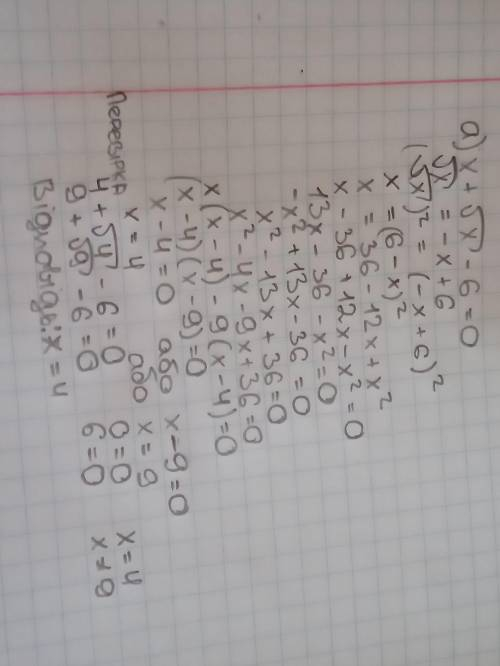 а) x + √x - 6 = 0
√x = -x + 6
(√x)² = (-x + 6)²
x = (6 - x)²
x = 36 - 12x + x²
x - 36 + 12x - x² = 0
13x - 36 - x² = 0
-x² + 13x - 36 = 0
x² - 13x + 36 = 0
x² - 4x - 9x + 36 = 0
x(x - 4) - 9(x - 4) = 0
(x - 4)(x - 9) = 0
x - 4 = 0 або x - 9 = 0
x = 4 або x = 9
Перевірка
4 + √4 - 6 = 0 0 = 0 x = 4
9 + √9 - 6 = 0 6 = 0 x ≠ 9
Відповідь: x = 4